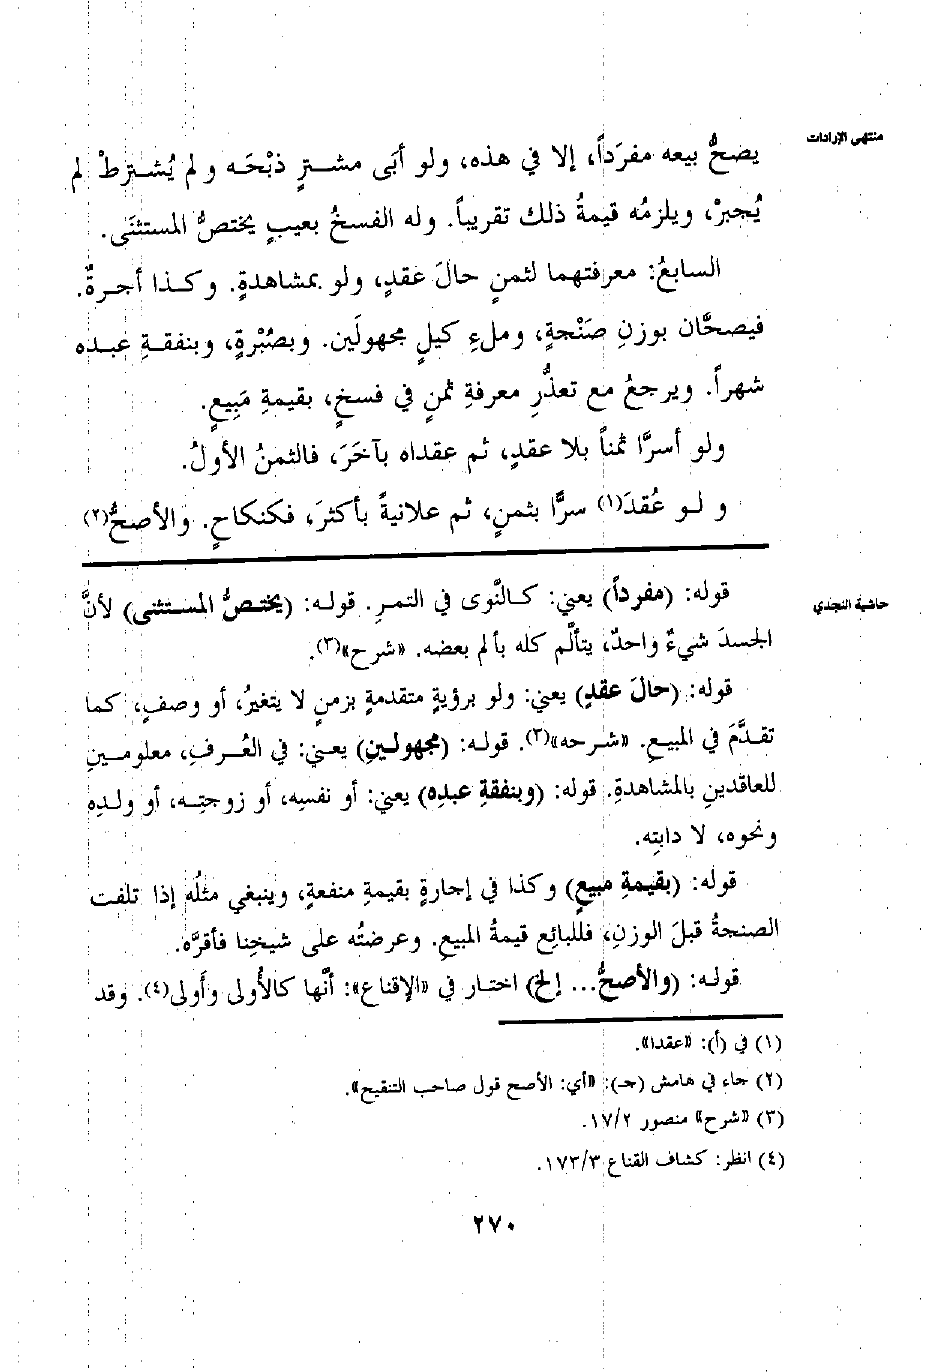 منتهى الإرادات
يصحُّ بيعه مفرَداً، إلا في هذه، ولو أبَى مشترٍ ذبْحَه ولم يُشترطْ لم
يُجبرْ، ويلزمُه قيمةُ ذلك تقريباً. وله الفسخُ بعيبٍ يختصُّ المستثنَى.
السابعُ: معرفتهما لثمنٍ حالَ عقدٍ، ولو بمشاهدةٍ. وكذا أجرةٌ.
فيصحَّان بوزنِ صَنْجةٍ، وملءِ كيلٍ مجهولَين. وبصُبْرةٍ، وبنفقةِ عبده
شهراً. ويرجعُ مع تعذُّرِ معرفةِ ثمنٍ في فسخٍ، بقيمةِ مَبِيعٍ.
ولو أسرَّا ثمناً بلا عقدٍ، ثم عقداه بآخَرَ، فالثمنُ الأولُ.
ولو عُقدَ(١) سرًّا بثمنٍ، ثم علانيةً بأكثرَ، فكنكاحٍ. والأصحُّ(٢)
حاشية النجدي
قوله: (مفرداً) يعني: كالنَّوى في التمرِ. قوله: (يختصُّ المستثنى) لأنَّ
الجسدَ شيءٌ واحدٌ، يتألَّم كله بألم بعضه. «شرح»(٣).
قوله: (حالَ عقدٍ) يعني: ولو برؤيةٍ متقدمةٍ بزمنٍ لا يتغيرُ، أو وصفٍ، كما
تقدَّمَ في المبيعِ. «شرحه»(٣). قوله: (مجهولينِ) يعني: في العُرفِ، معلومينِ
للعاقدينِ بالمشاهدةِ. قوله: (وبنفقةِ عبدِه) يعني: أو نفسِه، أو زوجتِه، أو ولدِه
ونحوه، لا دابتِه.
قوله: (بقيمةِ مبيعٍ) وكذا في إجارةٍ بقيمةِ منفعةٍ، وينبغي مثلُه إذا تلفت
الصنجةُ قبلَ الوزنِ، فللبائعِ قيمةُ المبيعِ. وعرضتُه على شيخِنا فأقرَّه.
قوله: (والأصحُّ... إلخ) اختار في «الإقناع»: أنَّها كالأُولى وأَولى(٤). وقد
(١) في (أ): «عقدا».
(٢) جاء في هامش (حـ): «أي: الأصح قول صاحب التنقيح».
(٣) «شرح» منصور ١٧/٢.
(٤) انظر: كشاف القناع ١٧٣/٣.
٢٧٠